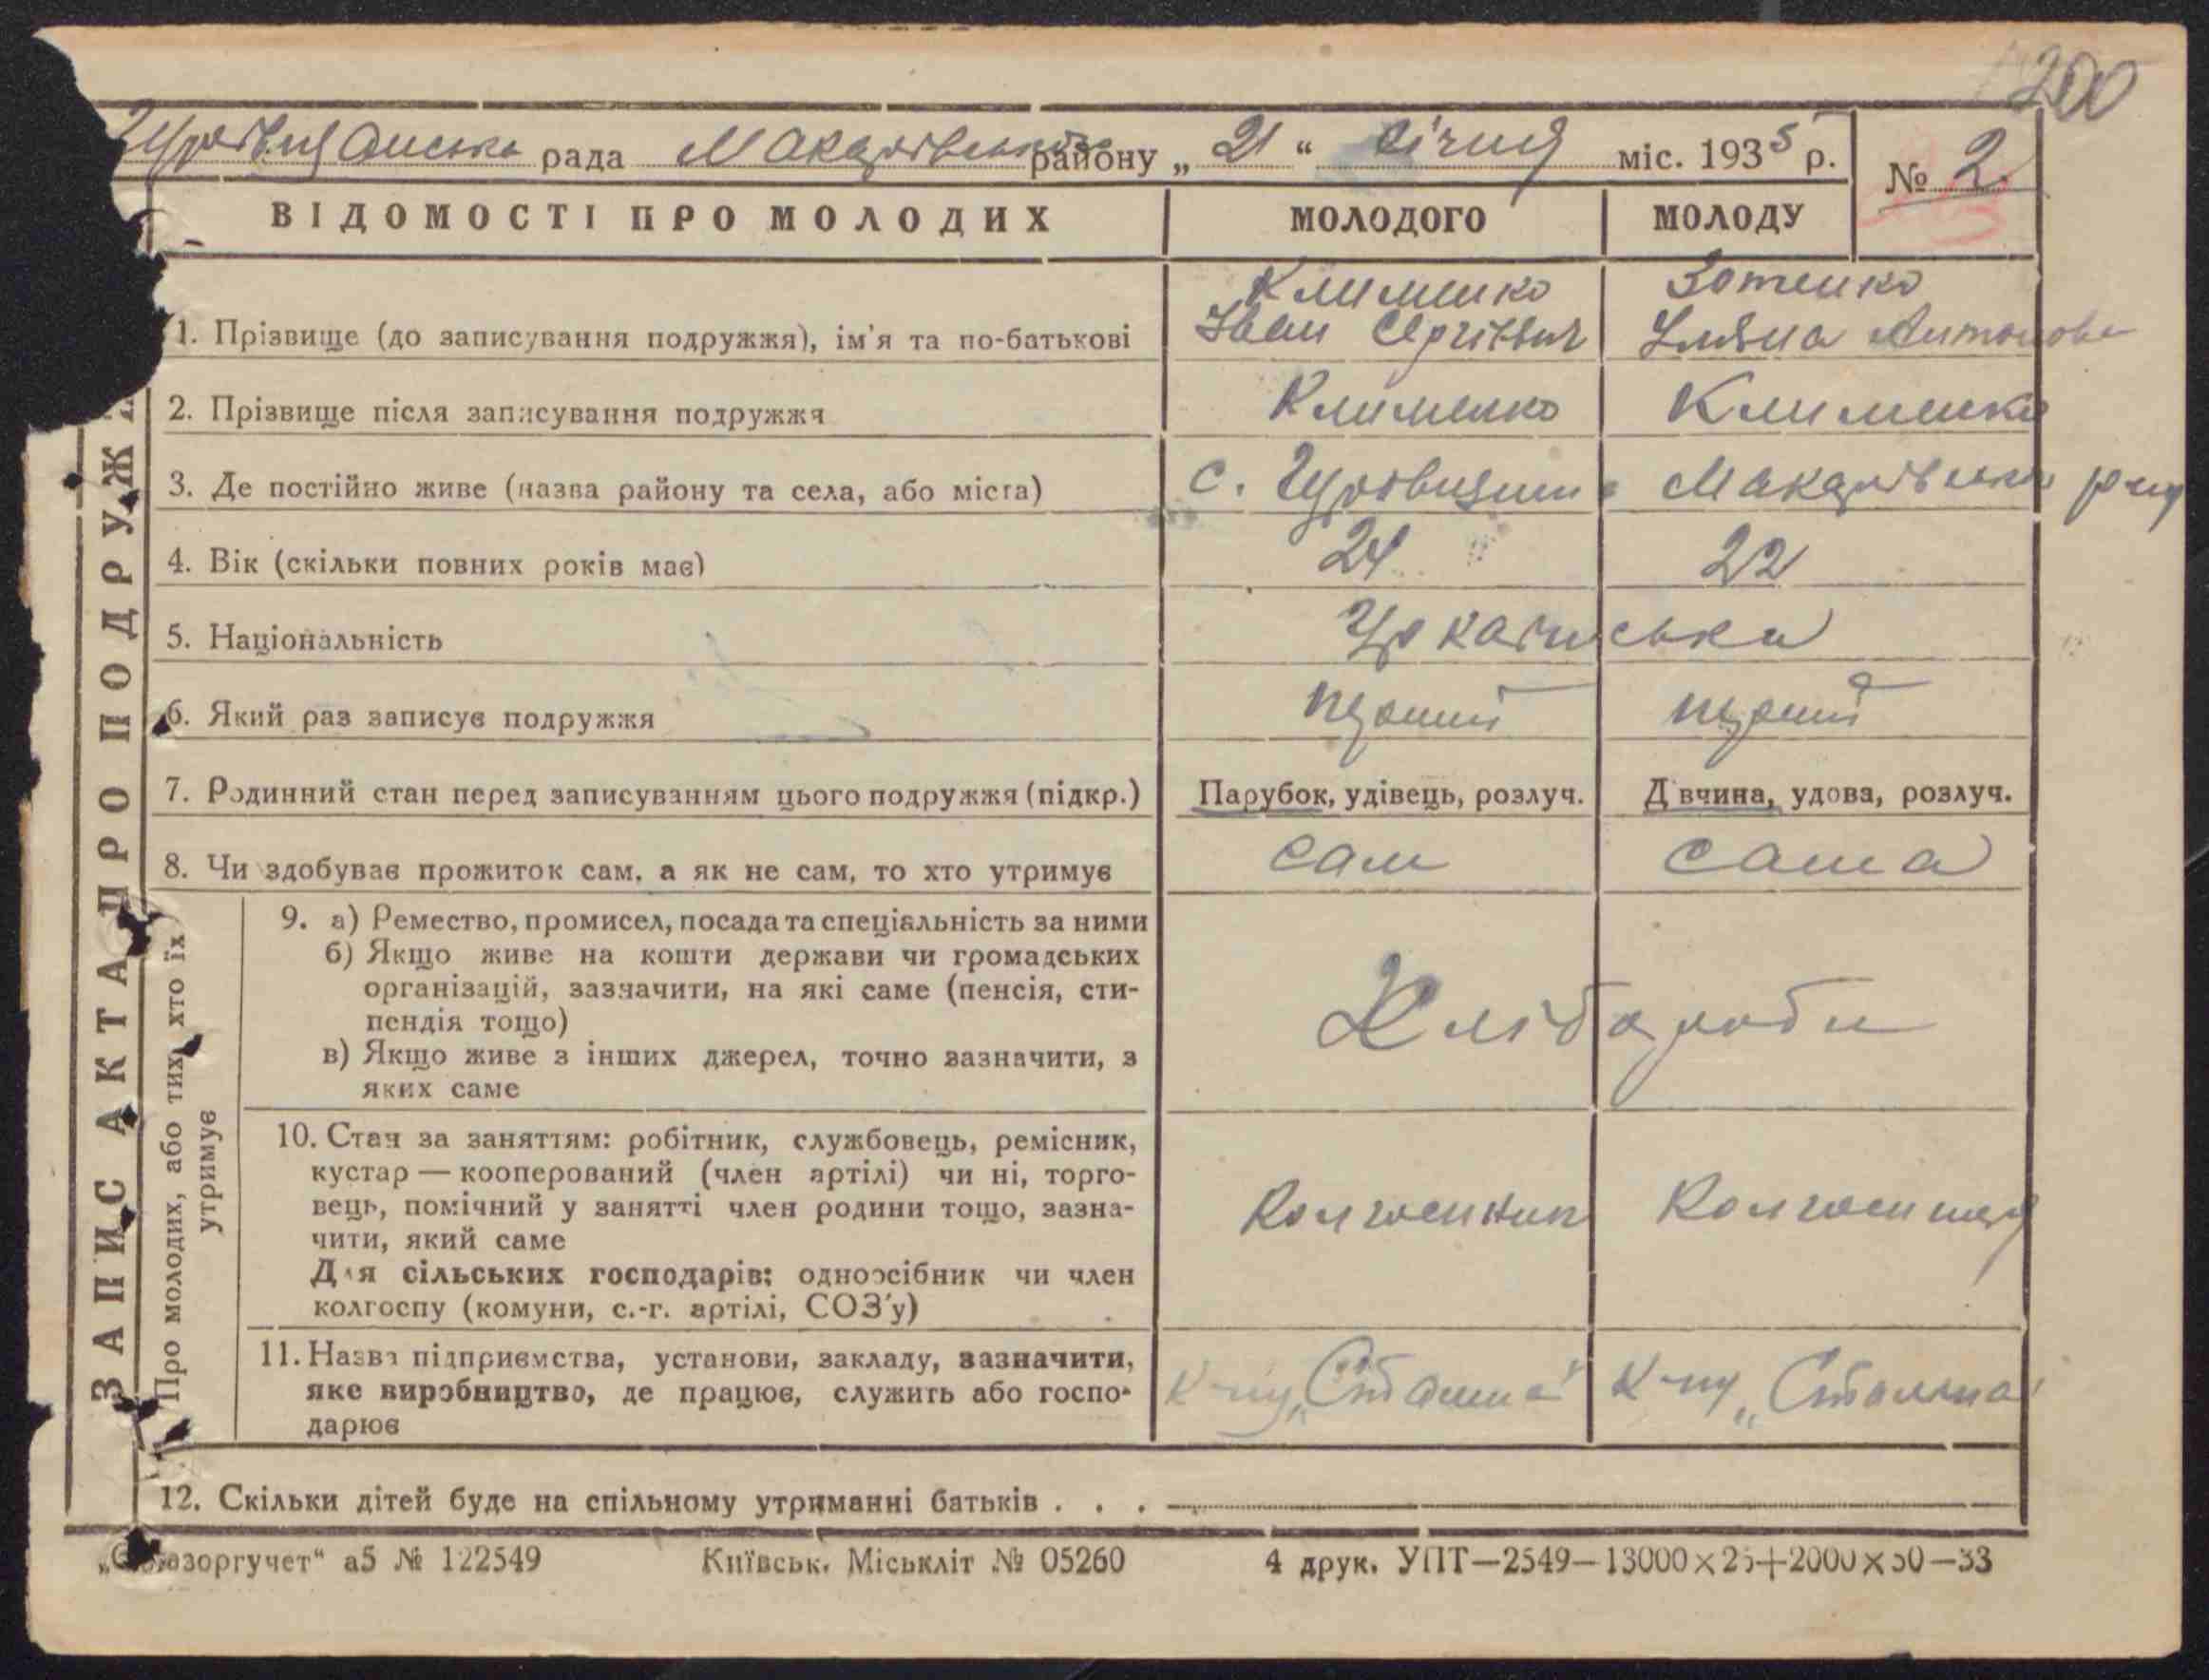 200
Гурівщанська рада Макарівського району „ 21 “ січня міс. 1935 р.
№ 2.
ВІДОМОСТІ ПРО МОЛОДИХ МОЛОДОГО МОЛОДУ
1. Прізвище (до записування подружжя), ім'я та по-батькові Клименко Іван Сергієвич Зотенко Уляна Антонова
2. Прізвище після записування подружжя Клименко Клименко
3. Де постійно живе (назва району та села, або міста) с. Гурівщина Макарівськ рну
4. Вік (скільки повних років має) 24 22
5. Національність Українська
6. Який раз записує подружжя перший перший
7. Родинний стан перед записуванням цього подружжя (підкр.) Парубок, удівець, розлуч. Дівчина, удова, розлуч.
8. Чи здобуває прожиток сам, а як не сам, то хто утримує сам сама
9. а) Ремество, промисел, посада та спеціяльність за ними
б) Якщо живе на кошти держави чи громадських
організацій, зазначити, на які саме (пенсія, сти-
пендія тощо)
в) Якщо живе з інших джерел, точно зазначити, з
яких саме
Хлібороби
10. Стан за заняттям: робітник, службовець, ремісник,
кустар — кооперований (член артілі) чи ні, торго-
вець, помічний у занятті член родини тощо, зазна-
чити, який саме
Для сільських господарів: одноосібник чи член
колгоспу (комуни, с.-г. артілі, СОЗ'у)
Колгоспник Колгоспниця
11. Назва підприємства, установи, закладу, зазначити,
яке виробництво, де працює, служить або госпо-
дарює
К-пу „Сталіна“ К-пу „Сталіна“
12. Скільки дітей буде на спільному утриманні батьків . . . —
ЗАПИС АКТА ПРО ПОДРУЖ
Про молодих, або тих, хто їх
утримує
„Союзоргучет“ а5 № 122549 Київськ. Міськліт № 05260 4 друк. УПТ—2549—13000×25+2000×50—33